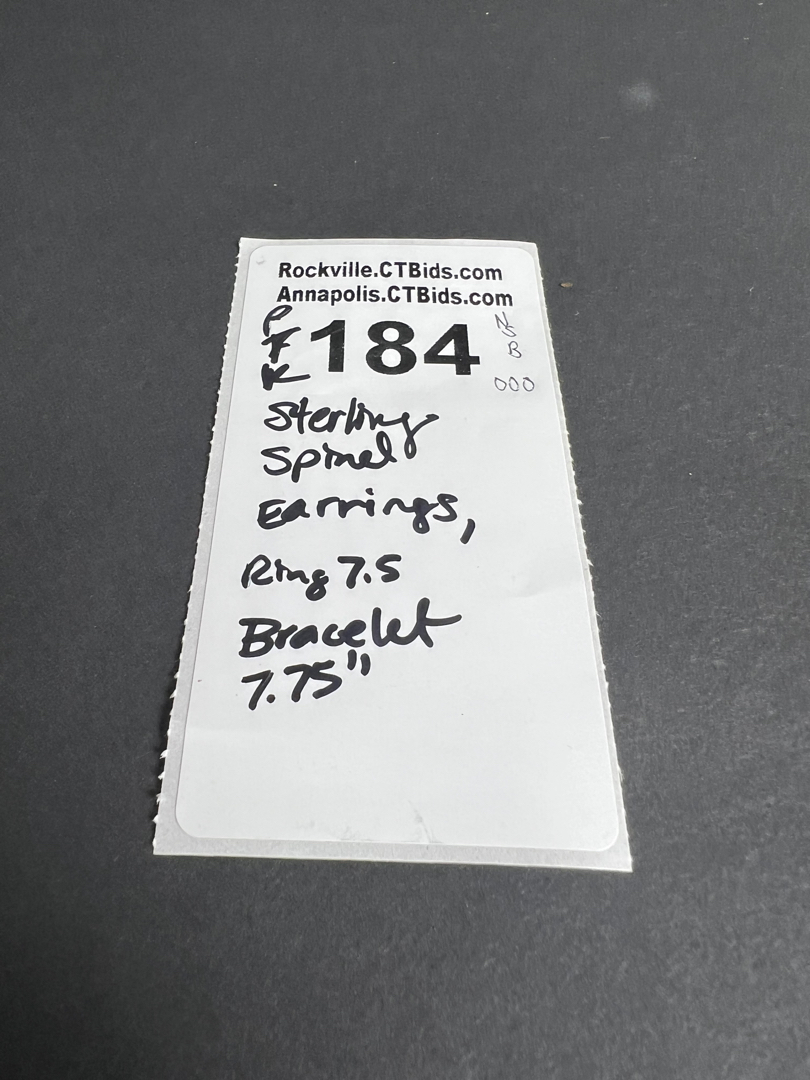 Rockville.CTBids.com
Annapolis.CTBids.com
P
7
K
184
N
S
B
000
Sterling
Spinel
Earrings,
Ring 7.5
Bracelet
7.75"